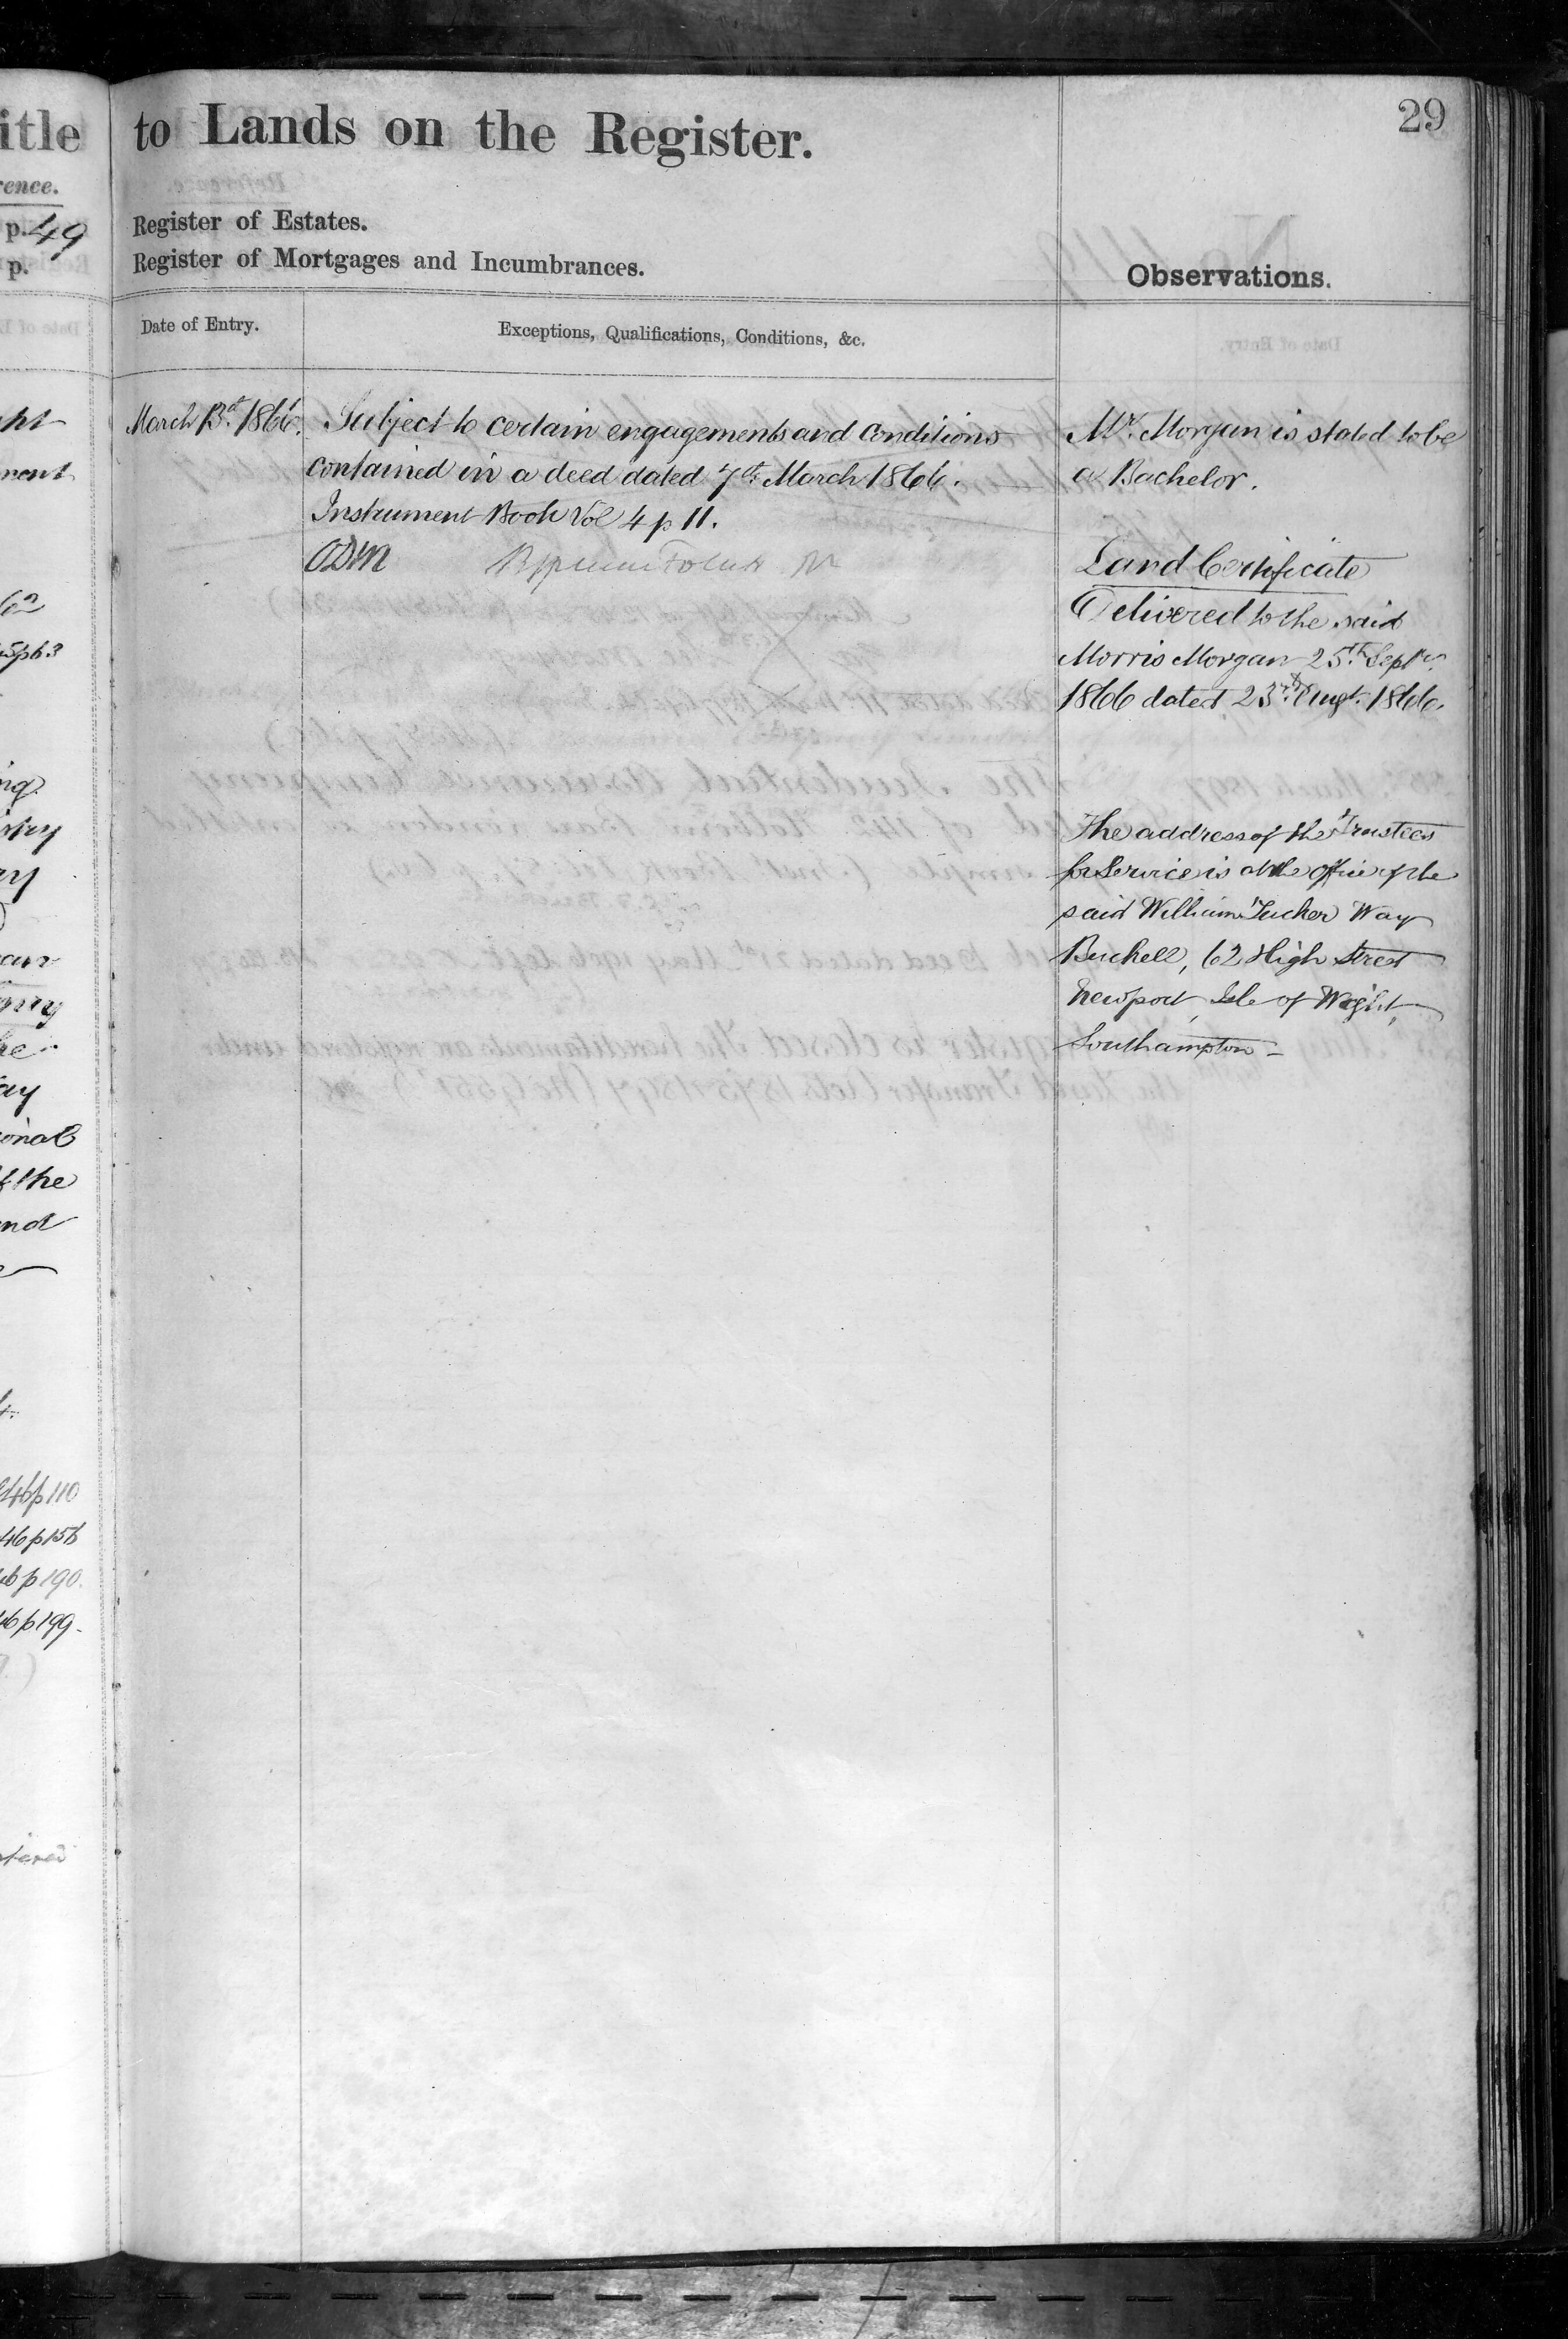 29
itle to Lands on the Register.
rence.
p. 49 Register of Estates.
p. Register of Mortgages and Incumbrances.
Observations.
Date of Entry.
Exceptions, Qualifications, Conditions, &c.
March 13th 1866. Subject to certain engagements and conditions
contained in a deed dated 7th March 1866.
Instrument Book Vol 4 p 11.
ODM
Mr. Morgan is stated to be
a Bachelor.
Land Certificate
Delivered to the said
Morris Morgan 25th Septr.
1866 dated 23rd Augt. 1866.
The address of the Trustees
for Service is at the office of the
said William Tucker Way
Buckell, 62 High Street
Newport, Isle of Wight,
Southampton -
nent
5p63
ay
ional
f the
nd
46p110
46p158
46p190.
46p199.